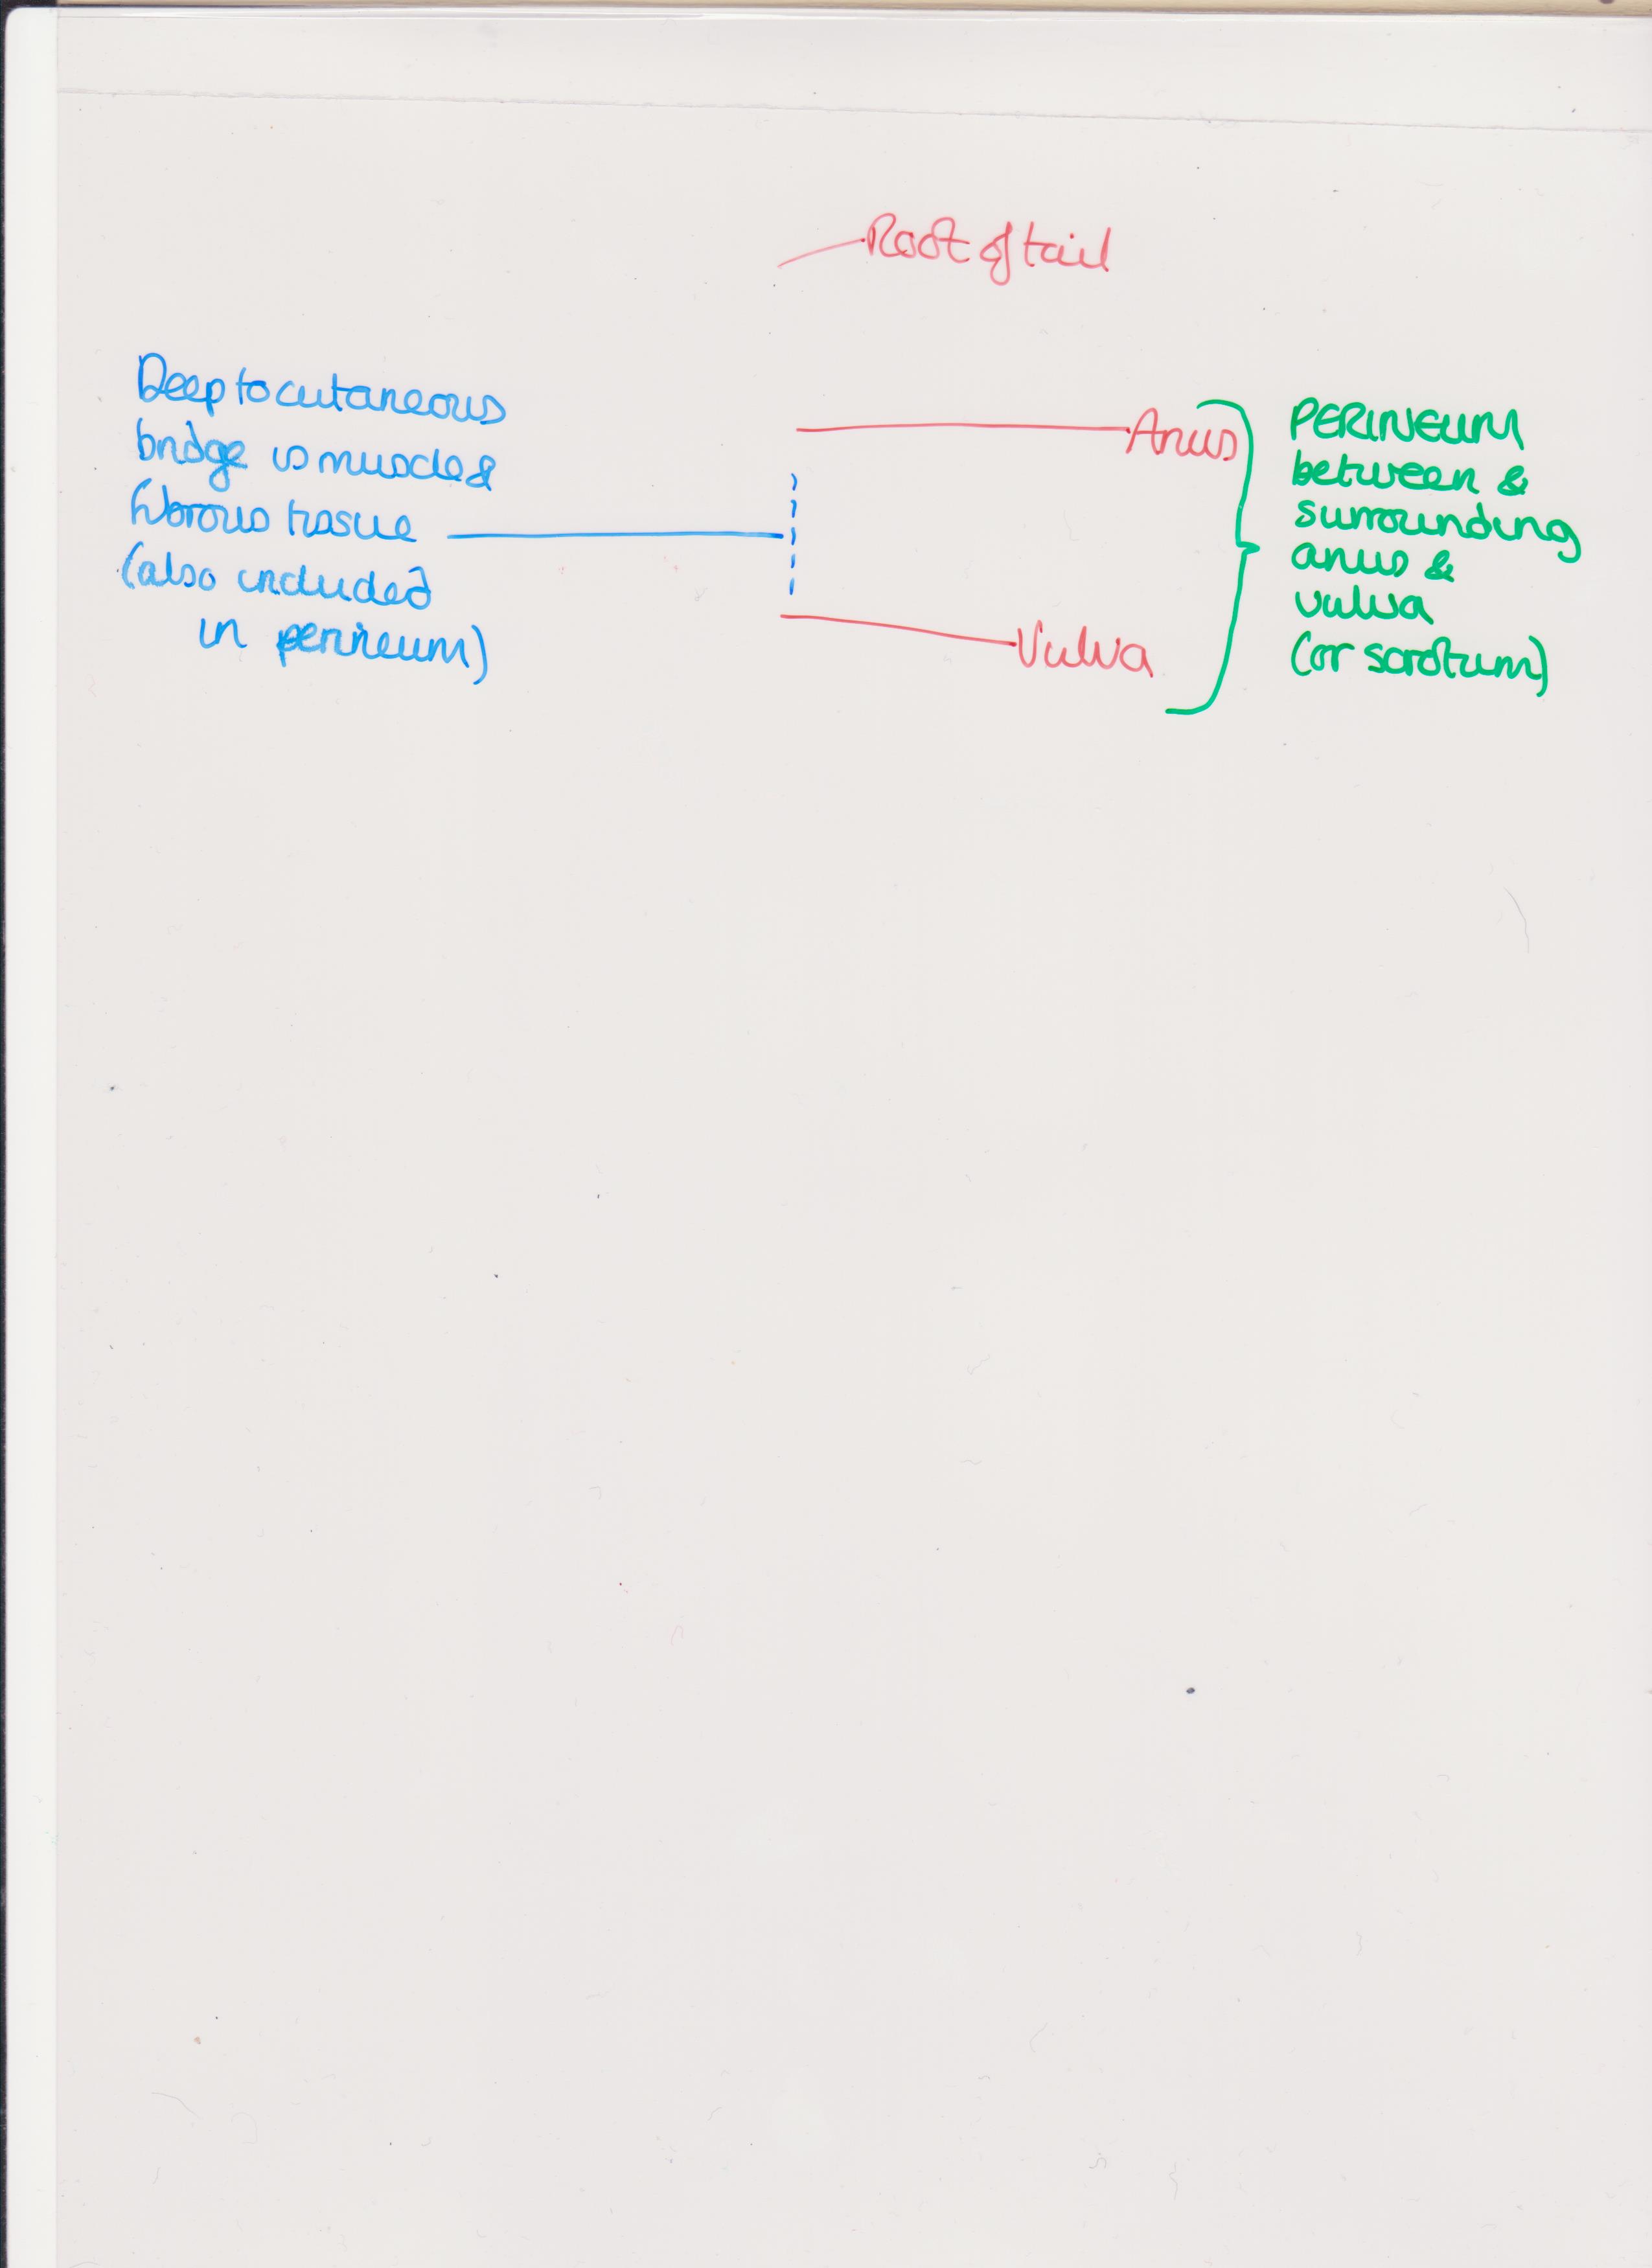 Root of tail
Deep to cutaneous
bridge is muscle &
fibrous tissue
(also included
in perineum)
Anus
Vulva
PERINEUM
between &
surrounding
anus &
vulva
(or scrotum)